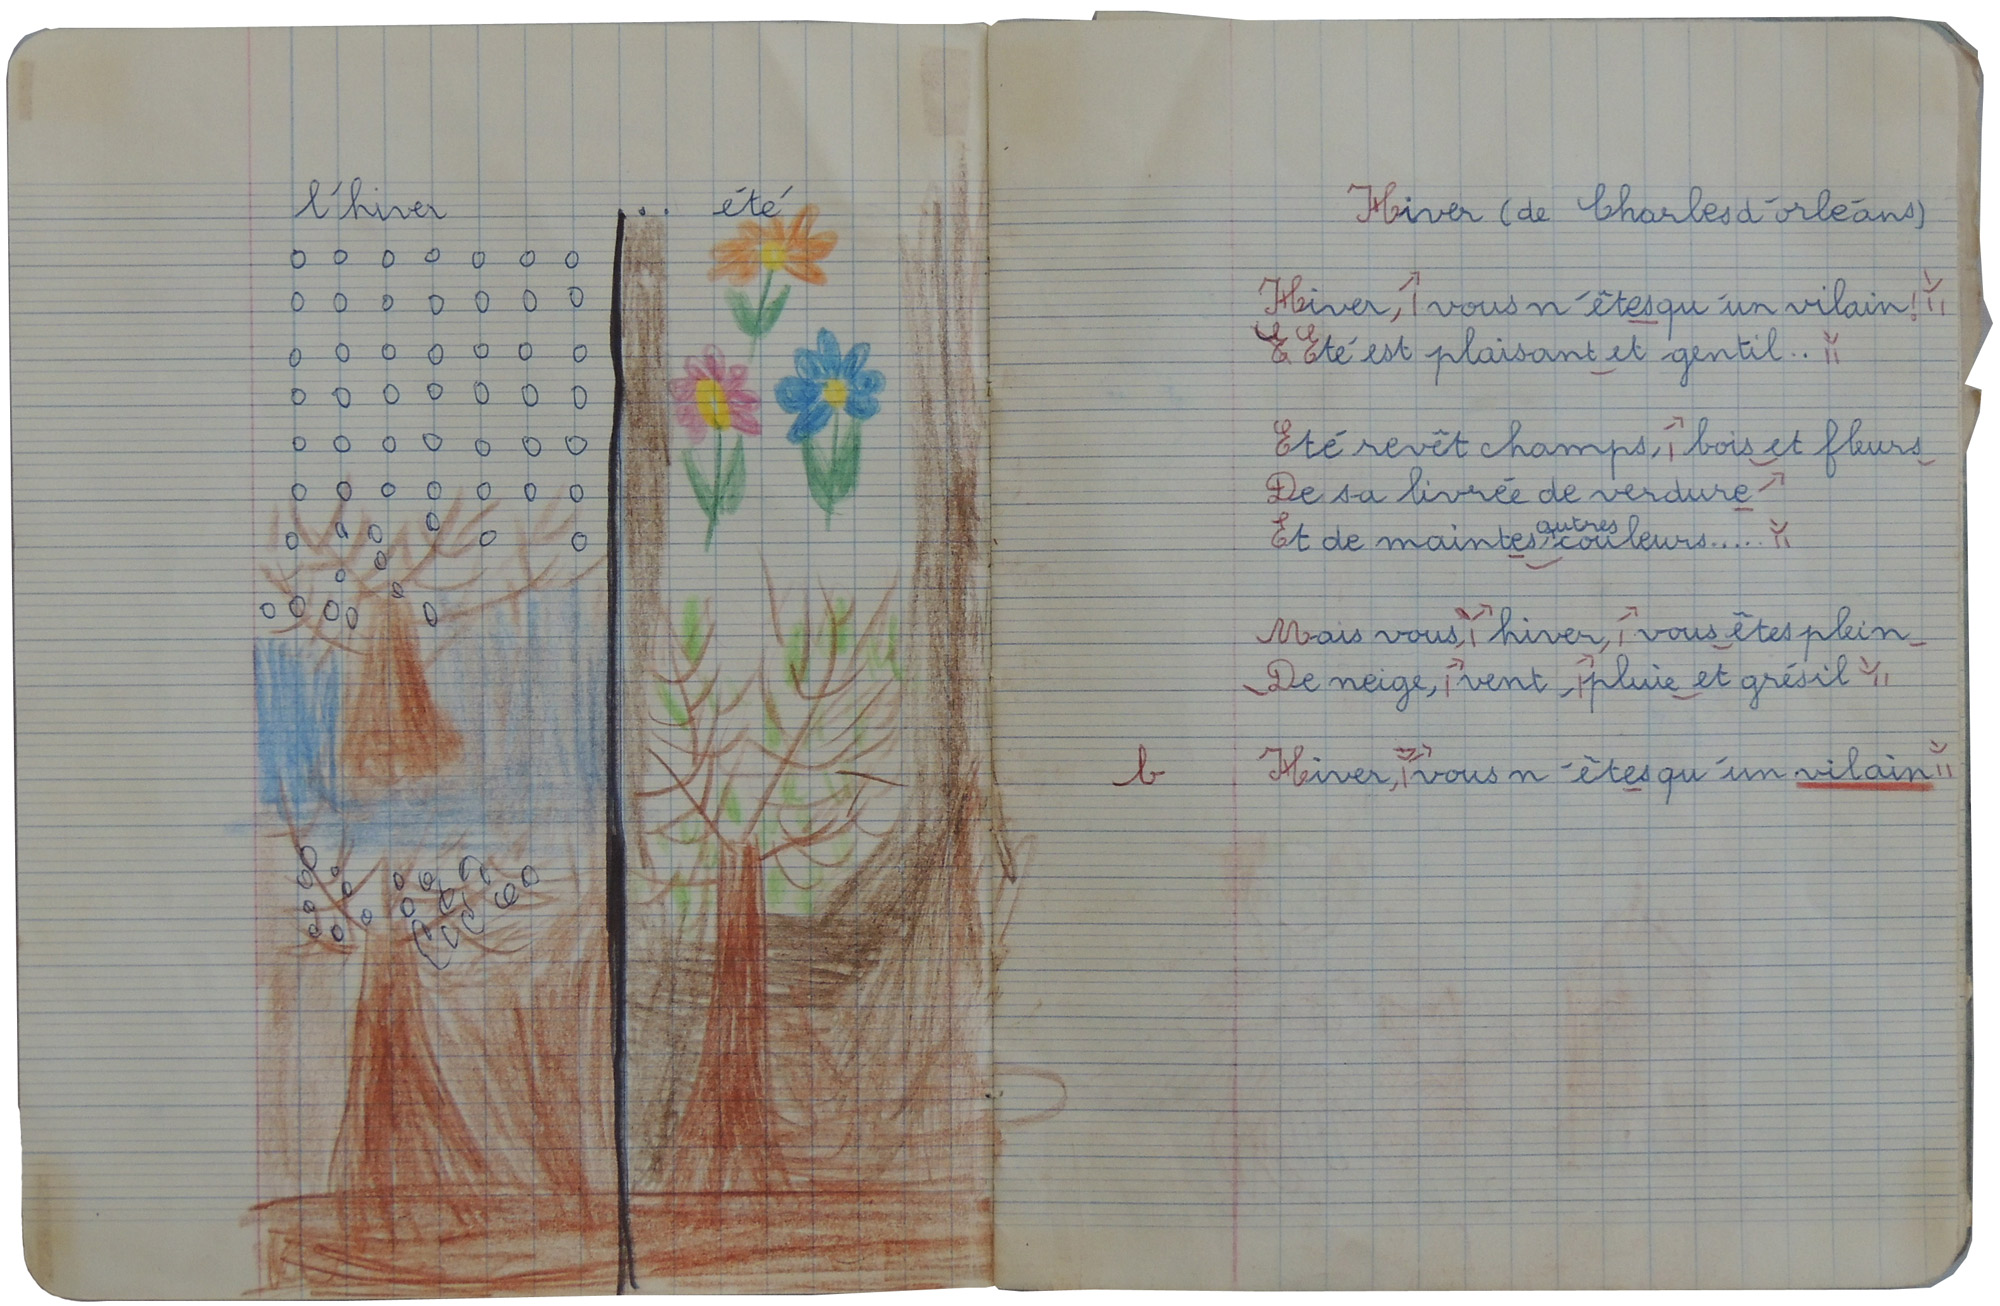 l'hiver ... été
Hiver (de Charles d'orléans)
Hiver, vous n'êtes qu'un vilain!
E Eté est plaisant et gentil..
Eté revêt champs, bois et fleurs
De sa livrée de verdure
Et de maintes autres couleurs.....
Mais vous, hiver, vous êtes plein
De neige, vent, pluie et grésil
b Hiver, vous n'êtes qu'un vilain